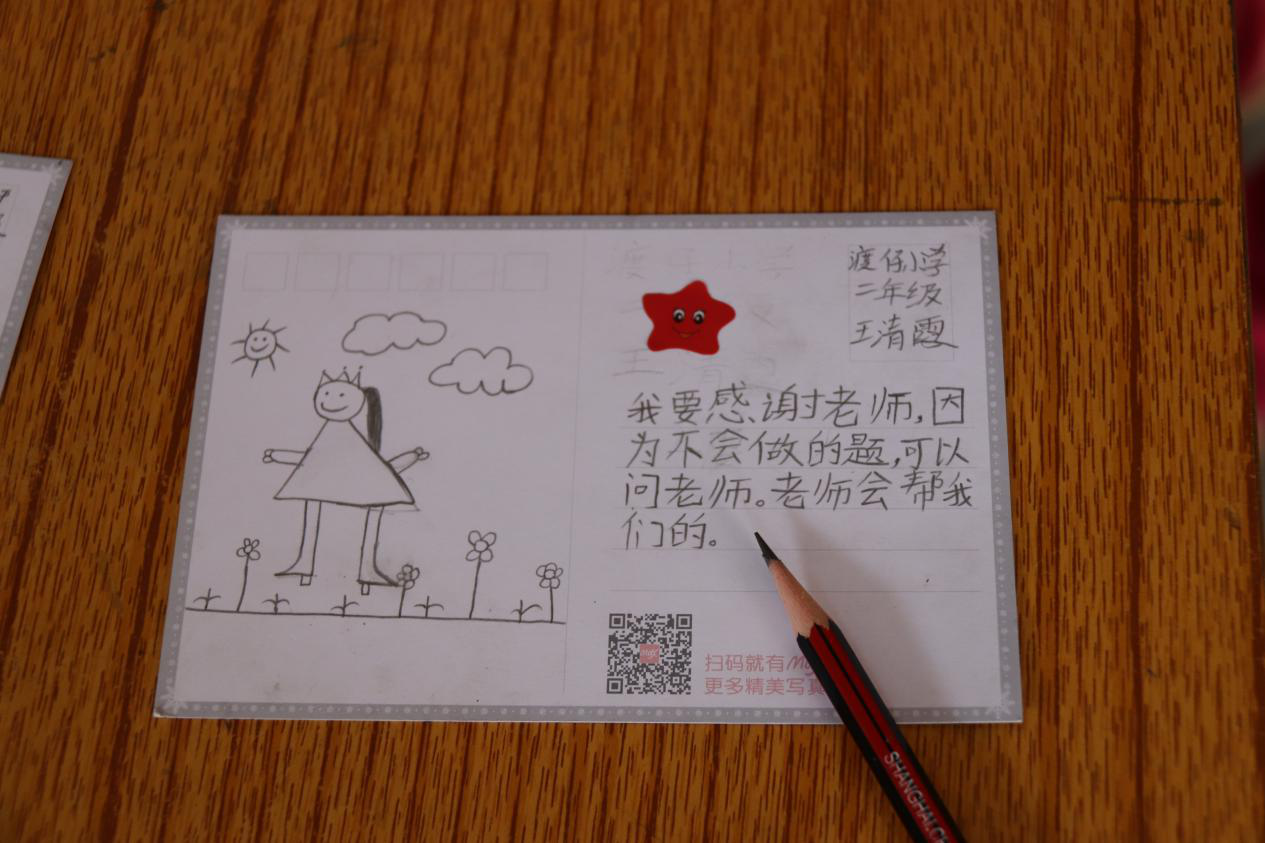 渡仔小学
二年级
王清霞
我要感谢老师,因
为不会做的题,可以
问老师。老师会帮我
们的。
扫码就有
更多精美写真
SHANGHAI.CH